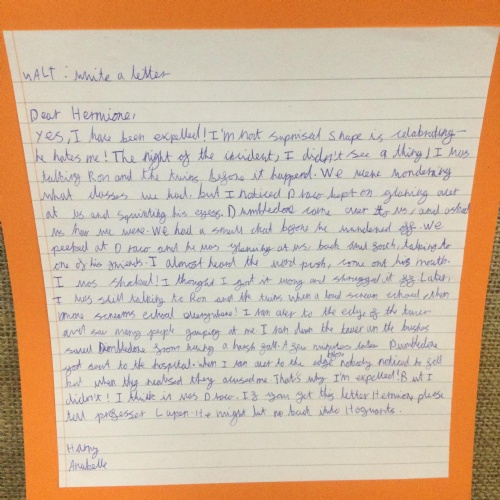 WALT: write a letter
Dear Hermione,
Yes, I have been expelled! I'm not suprised Snape is celebrating-
he hates me! The night of the incident, I didn't see a thing! I was
talking Ron and the twins before it happend. We were wondering
what classes we had, but I noticed Draco kept on glaring over
at us and squinting his eyes. Dumbledore came over to us, and asked
us how we were. We had a small chat before he wandered off. We
peeped at Draco and he was glancing at us, back and forth, talking to
one of his friends. I almost heard the word push, come out his mouth.
I was shocked! I thought I got it wrong and shrugged it off. Later,
I was still talking to Ron and the twins when a loud scream echoed, then
more screams echoed everywhere! I ran over to the edge of the tower
and saw many people gasping at me I ran down the tower the bushes
saved Dumbledore from having a harsh fall. A few minutes later Dumbledore
got sent to the hospital. when I ran over to the edge nobody noticed he fell
but when they realised they accused me. That's why I'm expelled! But I
didn't! I think it was Draco. If you get this letter Hermione, please
tell professer Lupin. He might let me back into Hogwarts.
Harry
Anabelle